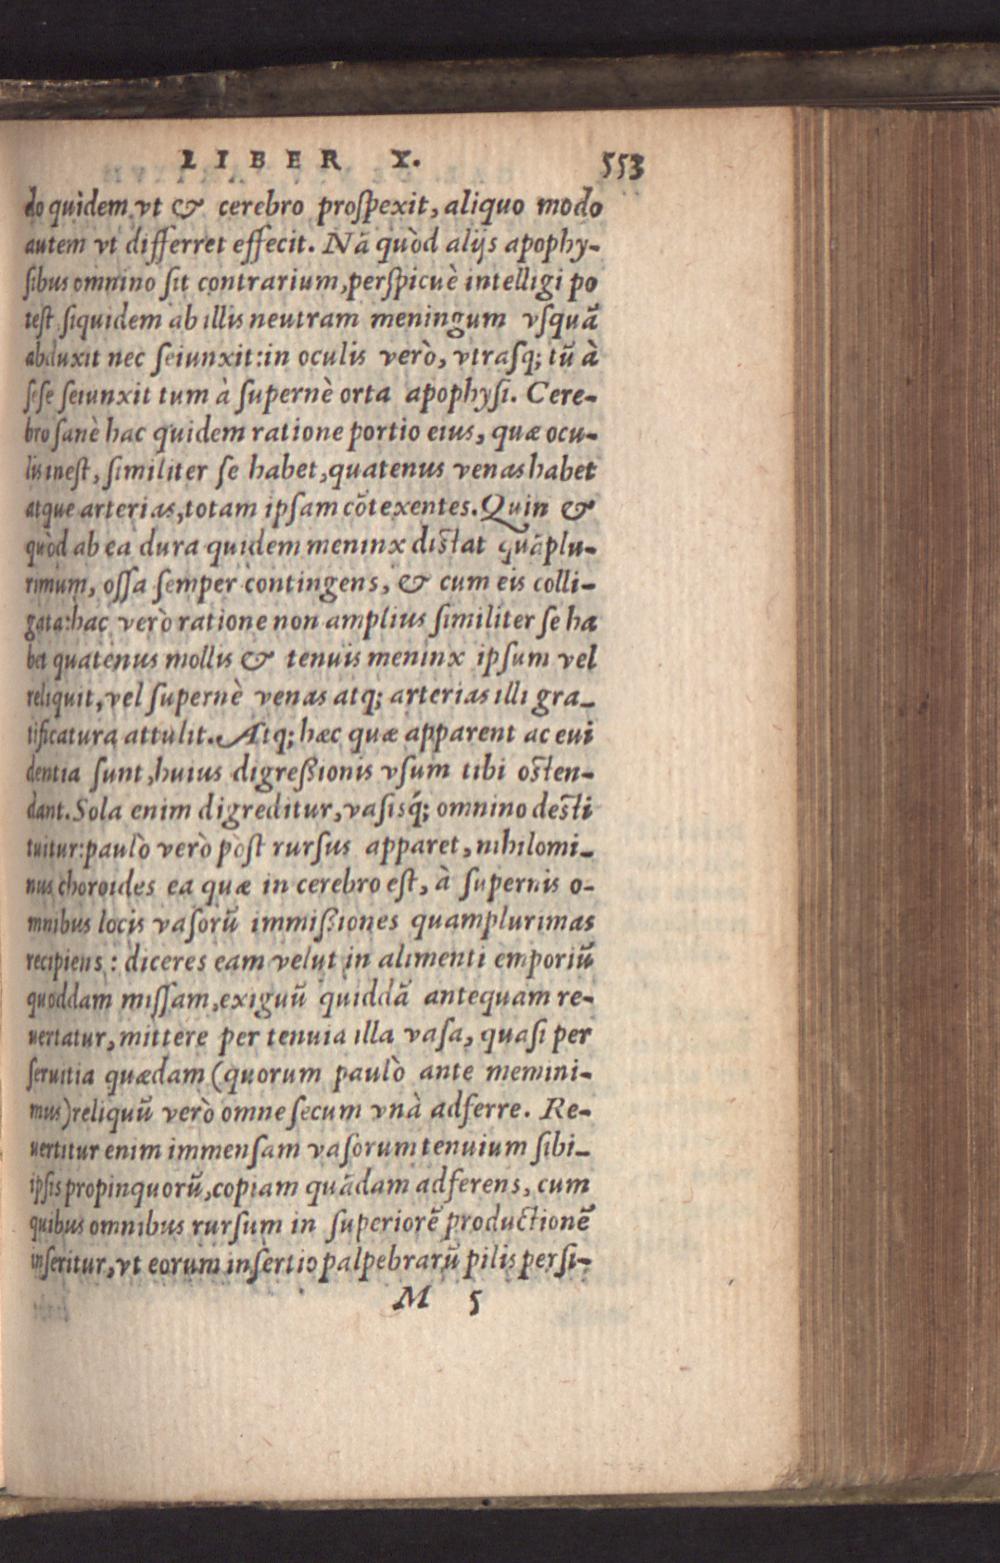 LIBER X. 553
do quidem vt & cerebro proſpexit, aliquo modo
autem vt differret effecit. Nã quòd alijs apophy-
ſibus omnino ſit contrarium, perſpicuè intelligi po
teſt ſiquidem ab illis neutram meningum vſquã
abduxit nec ſeiunxit: in oculis verò, vtraſq; tũ à
ſeſe ſeiunxit tum à ſupernè orta apophyſi. Cere-
bro ſanè hac quidem ratione portio eius, quæ ocu-
lis ineſt, ſimiliter ſe habet, quatenus venas habet
atque arterias, totam ipſam cõtexentes. Quin &
quòd ab ea dura quidem meninx diſtat quãplu-
rimum, oſſa ſemper contingens, & cum eis colli-
gata: hac verò ratione non amplius ſimiliter ſe ha
bet quatenus mollis & tenuis meninx ipſum vel
reliquit, vel ſupernè venas atq; arterias illi gra-
tificatura attulit. Atq; hæc quæ apparent ac eui
dentia ſunt, huius digreßionis vſum tibi oſten-
dant. Sola enim digreditur, vaſisq́; omnino deſti
tuitur: paulò verò pòſt rurſus apparet, nihilomi-
nus choroides ea quæ in cerebro eſt, à ſupernis o-
mnibus locis vaſorũ immißiones quamplurimas
recipiens: diceres eam velut in alimenti emporiũ
quoddam miſſam, exiguũ quiddã antequam re-
uertatur, mittere per tenuia illa vaſa, quaſi per
ſeruitia quædam (quorum paulò ante memini-
mus) reliquũ verò omne ſecum vnà adferre. Re-
uertitur enim immenſam vaſorum tenuium ſibi-
ipſis propinquorũ, copiam quãdam adferens, cum
quibus omnibus rurſum in ſuperiorẽ productionẽ
inſeritur, vt eorum inſertio palpebrarũ pilis perſi-
M 5